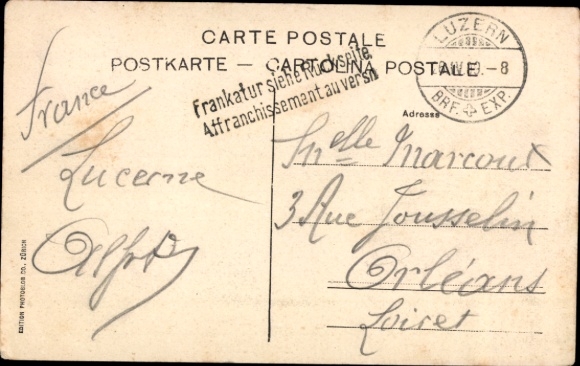 CARTE POSTALE
POSTKARTE — CARTOLINA POSTALE
Frankatur siehe Rückseite
Affranchissement au verso
LUZERN
–8
BRF. EXP.
Adresse
France
Lucerne
Melle Marcoux
3 Rue Jousselin
Orléans
Loiret
EDITION PHOTOGLOB CO., ZÜRICH